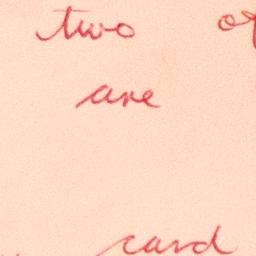 two
are
card